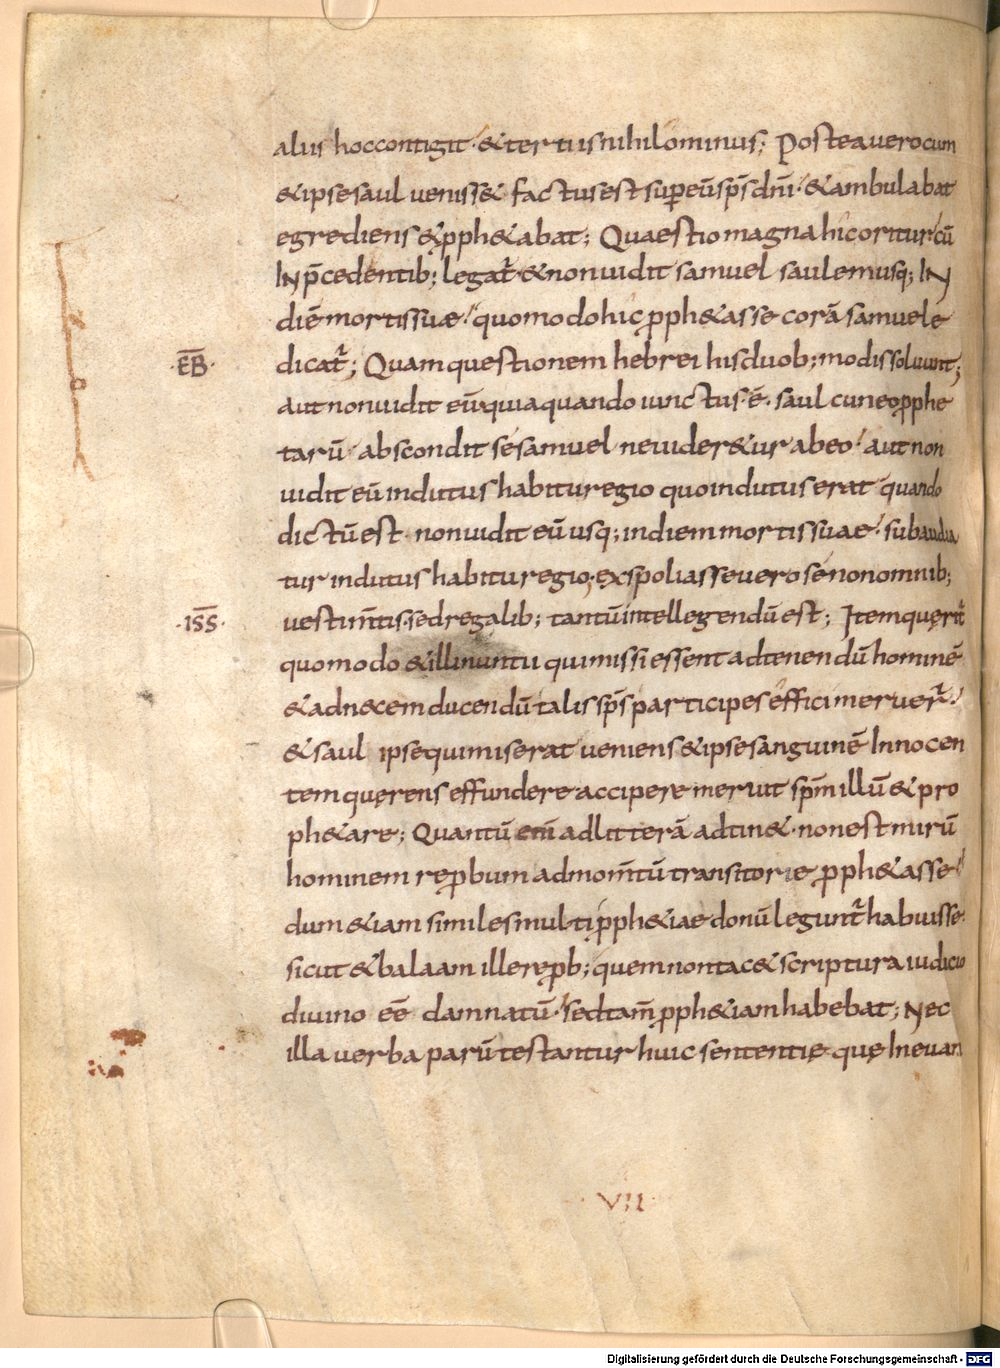 aliis hoc contigit · & tertiis nihilominus; Postea vero cum
& ipse saul veniss& factus est sup eū sp̄s dn̄i · & ambulabat
egrediens & pph&abat; Quaestio magna hic oritur cū
IN p̄cedentib; legat᷒ · & non uidit samuel saulem usq; IN
diē mortis suae · quomodo hic pph&asse corā samuele
·EB̄· dicat᷒; Quam questionem hebrei his duob; modis soluunt;
aut non uidit eū quia quando iunctus ·ē· saul cuneo pphe
tarū abscondit se samuel ne uider&ur ab eo · aut non
uidit eū indutus habitu regio quo indutus erat quando
dictū est · non uidit eū usq; in diem mortis suae · subaudia
tur indutus habitu regio · exspoliasse vero se non omnib;
·IS̄S̄· vestim̄tis · sed regalib; tantū intellegendū est; Item querit᷒
quomodo & illi nuntii qui missi essent ad tenendū hominē
& ad necem ducendū talis sp̄s participes effici meruer᷒ ·
& saul ipse qui miserat veniens & ipse sanguinē Innocen
tem querens effundere accipere meruit sp̄m illū & pro
ph&are; Quantū enī ad litterā adtin& · non est mirū
hominem repbum ad mom̄tū transitorie pph&asse
dum &iam similes multi pph&iae donū legunt᷒ habuisse ·
sicut & balaam ille repb; quem non tac& scriptura iudicio
diuino eē damnatū · sed tam̄ pph&iam habebat; Nec
illa verba parū testantur huic sententię quę In evan
VII
Digitalisierung gefördert durch die Deutsche Forschungsgemeinschaft - DFG